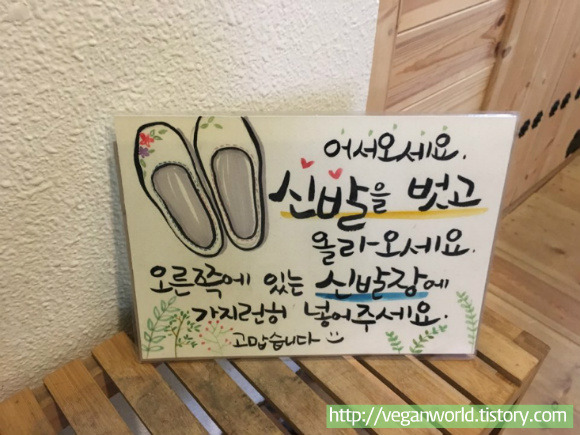 어서오세요.
신발을 벗고
올라오세요.
오른쪽에 있는 신발장에
가지런히 넣어주세요.
고맙습니다
http://veganworld.tistory.com